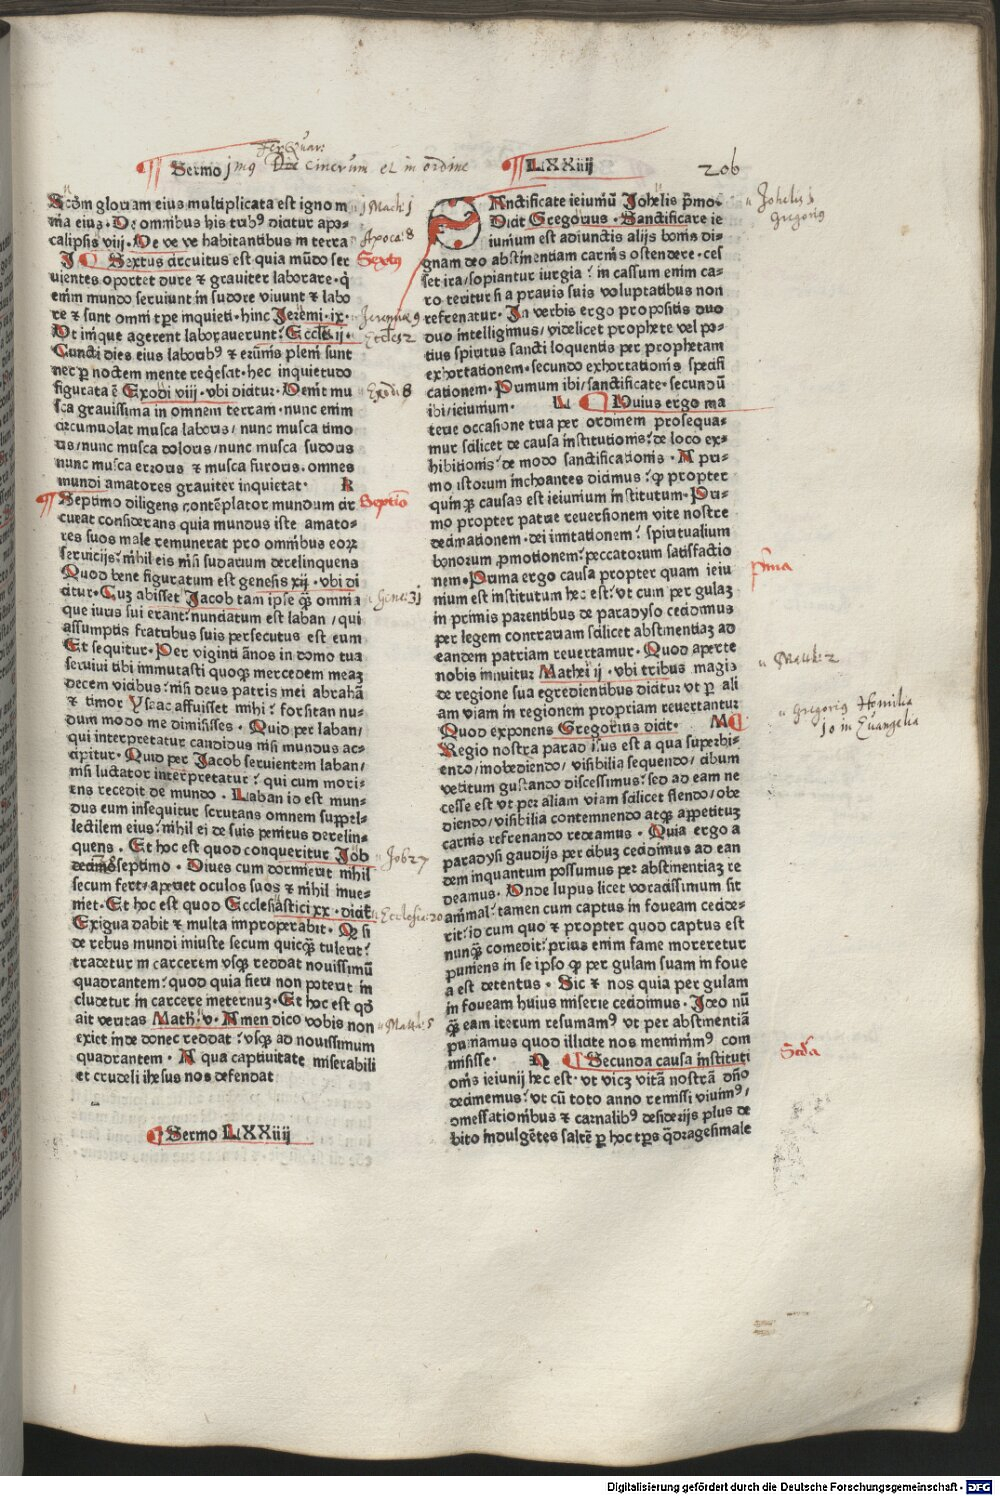 Sermo jmq Die cinerum et in ordine LXXiiij 206
Fer. Quar:
Scdm gloriam eius multiplicata est ignom
ma eius. De omnibus his tribꝰ dicitur apo-
calipsis viij. Ve ve ve habitantibus in terra
J Sextus circuitus est quia mūdo ser
uientes oportet dure ⁊ grauiter laborare. q̇
enim mundo seruiunt in sudore viuunt ⁊ labo
re ⁊ sunt omni tp̄e inquieti. hinc Jeremi. ix.
Ut inique agerent laborauerunt. Eccl's ij.
Cuncti dies eius laboribꝰ ⁊ erūnis pleni sunt
nec p̲ noctem mente req̇esat. hec inquietudo
figurata ē Exodi viij. vbi dicitur. Uenit mu
sca grauissima in omnem terram. nunc enim
circumuolat musca laboris/ nunc musca timo
ris/nunc musca doloris/nunc musca sudoris
nunc musca erroris ⁊ musca furoris. omnes
mundi amatores grauiter inquietat. K
Septimo diligens contēplator mundum cir
cueat considerans quia mundus iste amato-
res suos male remunerat pro omnibus eoꝝ
seruicijs: nihil eis nisi sudarium derelinquens
Quod bene figuratum est genesis xij. vbi di
citur. Cuꝫ abisset Jacob tam ipse q̄ȝ omnia
que iuris sui erant: nunciatum est laban / qui
assumptis fratribus suis persecutus est eum
Et sequitur. Per viginti ānos in domo tua
seruiui tibi immutasti quoqȝ mercedem meaꝫ
decem vicibus: nisi deus patris mei abrahā
⁊ timor Ysaac affuisset mihi: forsitan nu-
dum modo me dimisisses. Quid per laban/
qui interpretatur candidus nisi mundus ac-
cipitur. Quid per Jacob seruientem laban/
nisi luctator interpretatur: qui cum mori-
ens recedit de mundo. Laban id est mun-
dus eum insequitur scrutans omnem suppel-
lectilem eius: nihil ei de suis penitus derelin-
quens. Et hoc est quod conqueritur Job
decimoseptimo. Diues cum dormierit nihil
secum fert/aperiet oculos suos ⁊ nihil inue-
niet. Et hoc est quod Ecclesiastici xx. dicit
Exigua dabit ⁊ multa improperabit. Qꝛ si
de rebus mundi iniuste secum quicq̄ȝ tulerit:
tradetur in carcerem vsqȝ reddat nouissimū
quadrantem: quod quia fieri non poterit in
cludetur in carcere ineternuꝫ. Et hoc est qd̄
ait veritas Math. v. Amen dico vobis non
exiet inde donec reddat: vsqȝ ad nouissimum
quadrantem. A qua captiuitate miserabili
et crudeli ihesus nos defendat
Sermo LXXiiij
j Mach: j
Apoca: 8
Sext9
Jeremiæ 9
Eccles 2
Exodi 8
Septim9
Gene: 31
Job 27
Ecclesia: 20
Matth: 5
SAnctificate ieiuniū Johelis p̄mo.
Dicit Gregorius. Sanctificare ie
iunium est adiunctis alijs bonis di-
gnam deo abstinentiam carnis ostendere. ces
set ira/sopiantur iurgia: in cassum enim ca-
ro teritur si a prauis suis voluptatibus non
refrenatur. In verbis ergo propositis duo
duo intelligimus/ videlicet prophete vel po-
tius spiritus sancti loquentis per prophetam
exhortationem. secundo exhortationis specifi
cationem. Primum ibi/sanctificate. secundū
ibi/ieiunium. L Huius ergo ma
terie occasione tria per ordinem prosequa-
mur scilicet de causa institutionis: de loco ex-
hibitionis: de modo sanctificationis. A pri-
mo istorum inchoantes dicimus: qꝫ propter
quinqȝ causas est ieiunium institutum. Pri-
mo propter patrie reuersionem vite nostre
decimationem. dei imitationem: spiritualium
bonorum promotionem: peccatorum satisfactio
nem. Prima ergo causa propter quam ieiu
nium est institutum hec est: vt cum per gulaꝫ
in primis parentibus de paradyso cecidimus
per legem contrariam scilicet abstinentiaꝫ ad
eandem patriam reuertamur. Quod aperte
nobis innuitur Mathei ij. vbi tribus magis
de regione sua egredientibus dicitur vt p̲ ali
am viam in regionem propriam reuertantur
Quod exponens Gregorius dicit. M
Regio nostra paradisus est a qua superbi-
endo/inobediendo/ visibilia sequendo/ cibum
vetitum gustando discessimus: sed ad eam ne
cesse est vt per aliam viam scilicet flendo/obe
diendo/visibilia contemnendo atqȝ appetituꝫ
carnis refrenando redeamus. Quia ergo a
paradysi gaudijs per cibuꝫ cecidimus ad ean
dem inquantum possumus per abstinentiaꝫ re
deamus. Unde lupus licet voracissimum sit
animal: tamen cum captus in foueam cecide-
rit: id cum quo ⁊ propter quod captus est
nunq̄ȝ comedit: prius enim fame moreretur
puniens in se ipso qꝫ per gulam suam in foue
a est detentus. Sic ⁊ nos quia per gulam
in foueam huius miserie cecidimus. Ideo nū
q̄ȝ eam iterum resumamꝰ vt per abstinentiā
puniamus quod illicite nos meminimꝰ com
misisse. N Secunda causa instituti
onis ieiunij hec est. vt vicꝫ vitā nostrā dn̄o
decimemus: vt cū toto anno remissi viuimꝰ/
omessationibus ⁊ carnalibꝰ desiderijs plus de
bito indulgētes saltē p̲ hoc tp̄s q̄dragesimale
Johelis 1
Gregoriꝰ
Pri̅ma
Matth: 2
Gregoriꝰ Homilia
10 in Euangelia
Scd̅a
Digitalisierung gefördert durch die Deutsche Forschungsgemeinschaft - DFG